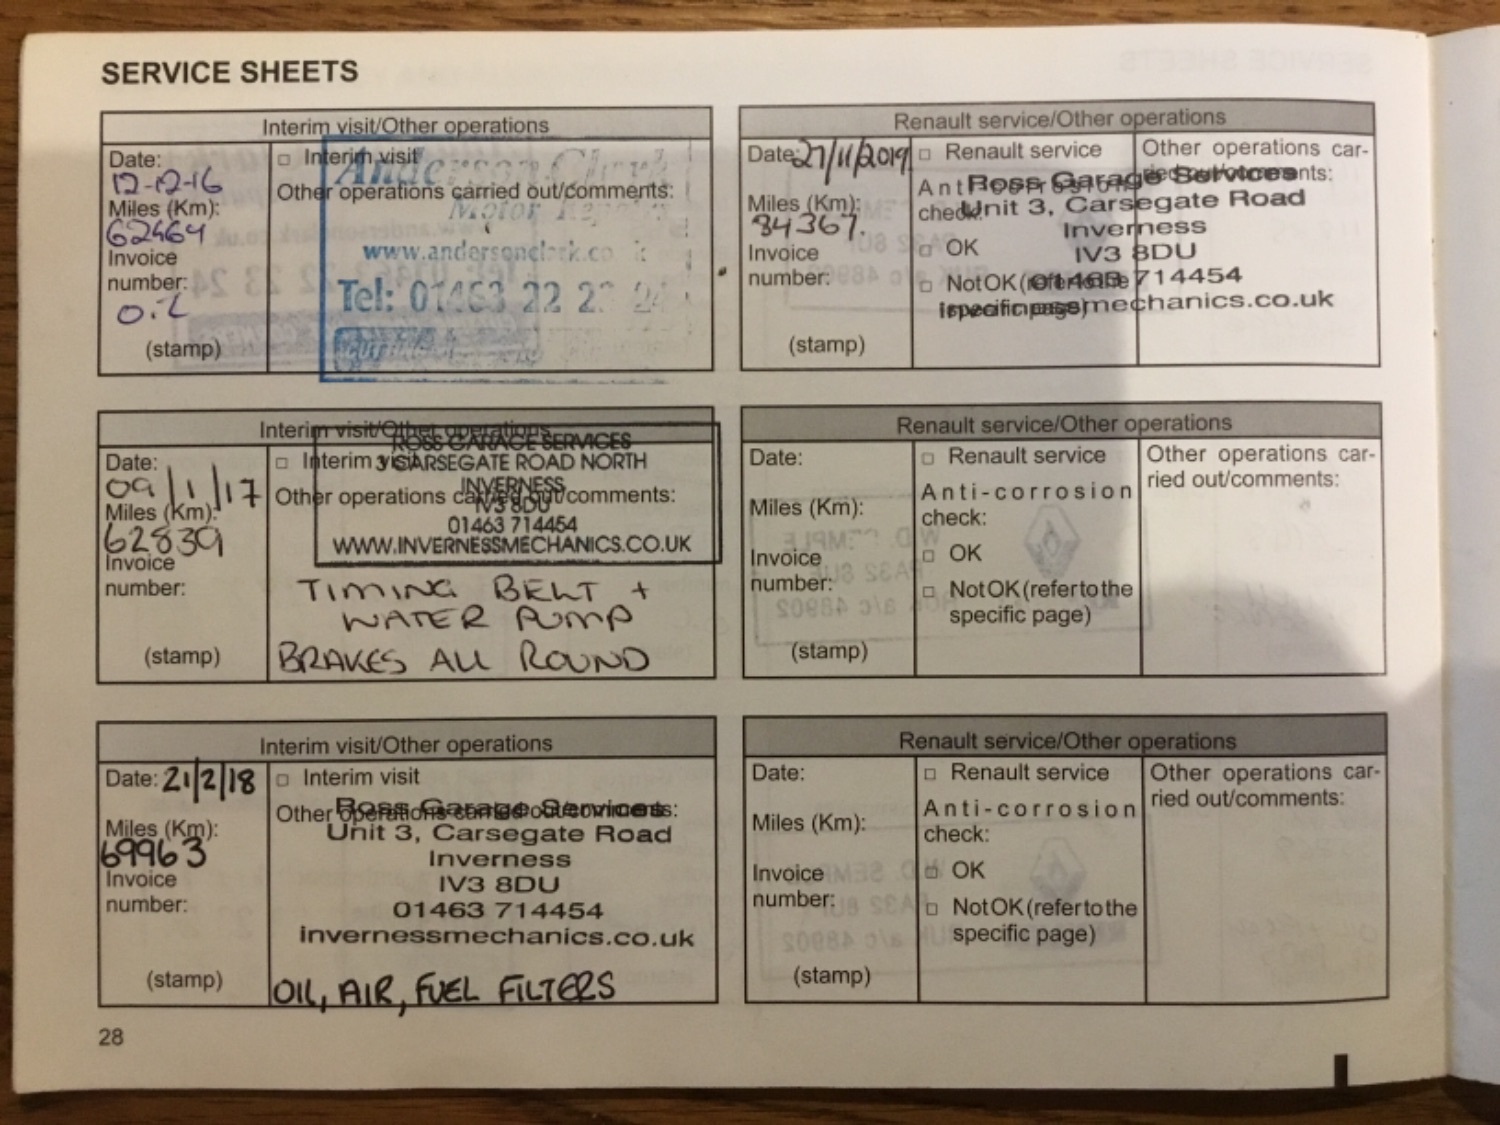 SERVICE SHEETS
Interim visit/Other operations
Date:
12-12-16
Miles (Km):
62464
Invoice
number:
(stamp)
□ Interim visit
Other operations carried out/comments:
Anderson Clark
Motor Repairs
www.andersonclark.co
Tel: 01463 22 2
Renault service/Other operations
Date: 27/11/2019
Miles (Km):
84367.
Invoice
number:
(stamp)
□ Renault service
Anti-corrosion
check:
□ OK
□ Not OK (refer to the
specific page)
Other operations car-
ried out/comments:
Ross Garage Services
Unit 3, Carsegate Road
Inverness
IV3 8DU
01463 714454
invernessmechanics.co.uk
Interim visit/Other operations
Date:
09/1/17
Miles (Km):
62839
Invoice
number:
(stamp)
□ Interim visit
Other operations carried out/comments:
ROSS GARAGE SERVICES
3 CARSEGATE ROAD NORTH
INVERNESS
IV3 8DU
01463 714454
WWW.INVERNESSMECHANICS.CO.UK
TIMING BELT +
WATER PUMP
BRAKES ALL ROUND
Renault service/Other operations
Date:
Miles (Km):
Invoice
number:
(stamp)
□ Renault service
Anti-corrosion
check:
□ OK
□ Not OK (refer to the
specific page)
Other operations car-
ried out/comments:
Interim visit/Other operations
Date: 21/2/18
Miles (Km):
69963
Invoice
number:
(stamp)
□ Interim visit
Other operations carried out/comments:
Ross Garage Services
Unit 3, Carsegate Road
Inverness
IV3 8DU
01463 714454
invernessmechanics.co.uk
OIL, AIR, FUEL FILTERS
Renault service/Other operations
Date:
Miles (Km):
Invoice
number:
(stamp)
□ Renault service
Anti-corrosion
check:
□ OK
□ Not OK (refer to the
specific page)
Other operations car-
ried out/comments:
28